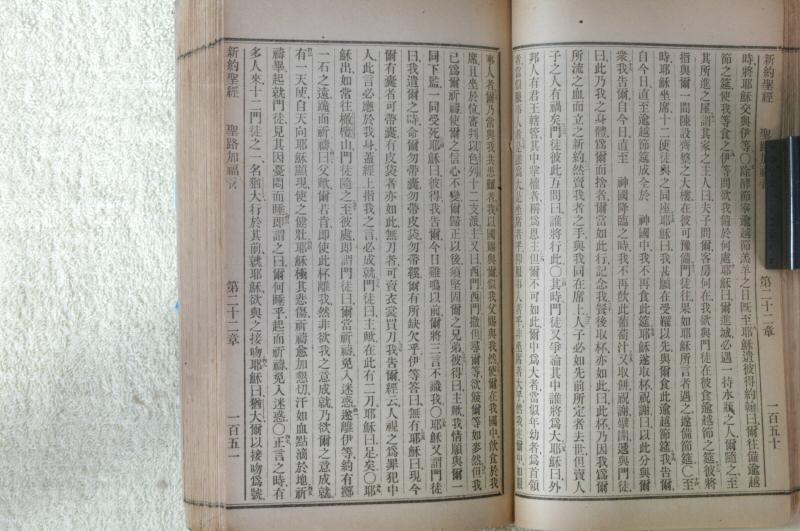 新約聖經　聖路加福音　第二十二章　一百五十
時將耶穌交與伊等〇除酵節宰逾越節羔羊之日旣至耶穌遣彼得約翰曰爾往備逾越
節之筵使我等食之伊等問欲我備於何處耶穌曰爾進城必遇一持水瓶之人爾隨之至
其所進之屋謂其家之主人曰夫子問爾客房何在我欲與門徒在彼食逾越節之筵彼將
指與爾一間陳設齊整之大樓在彼可豫備門徒往果如耶穌所言者遇之遂備節筵〇至
時耶穌坐席十二使徒與之同座耶穌曰我甚願在受難以先與爾食此逾越節筵我告爾
自今日直至逾越節筵成全於　神國中我不再食此筵耶穌遂取杯祝謝曰以此分與爾
衆我告爾自今日直至　神國降臨之時我不再飲此葡萄汁又取餅祝謝擘開遞與門徒
曰此乃我之身體爲爾而捨者爾當如此行記念我餐後取杯亦如此曰此杯乃因我爲爾
所流之血而立之新約然賣我者之手與我同在席上人子必如先前所定者去世但賣人
子之人有禍矣門徒彼此互問曰誰將行此〇其時門徒又爭論其中誰將爲大耶穌曰外
邦人有君王轄管其中掌權者稱爲恩主但爾不可如此爾中爲大者當似年幼者爲首領
事人者爾乃當與我共患難者我以國賜與爾似我父賜與我然使爾在我國中飲食於我
席且坐於位審判以色列十二支派主又曰西門西門撒但尋爾等欲篩爾等如麥然但我
已爲爾祈禱使爾之信心不變爾歸正以後須堅固爾之兄弟彼得曰主歟我情願與爾一
同下監一同受死耶穌曰彼得我告爾今日雞鳴以前爾將三言不識我〇耶穌又謂門徒
曰我遣爾之時命爾勿帶囊勿帶皮袋勿帶鞋爾有所缺欠乎伊等答曰無有耶穌曰現今
爾有囊者可帶囊有皮袋者亦如此無刀者可賣衣裳買刀我告爾經云人視之爲罪犯中
人此言必應於我身蓋經上指我之言必成就門徒曰主歟在此有二刀耶穌曰足矣〇耶
穌出如常往橄欖山門徒隨之至彼處即謂門徒曰爾當祈禱免入迷惑遂離伊等約有擲
一石之遠跪而祈禱曰父歟爾若肯即使此杯離我然非欲我之意成就乃欲爾之意成就
有一天使自天向耶穌顯現使之健壯耶穌極其悲傷祈禱愈加懇切汗如血點滴於地祈
禱畢起就門徒見其因憂悶而睡即謂之曰爾何睡乎起而祈禱免入迷惑〇正言之時有
多人來十二門徒之一名猶大行於其前就耶穌欲與之接吻耶穌曰猶大爾以接吻爲號
新約聖經　聖路加福音　第二十二章　一百五一